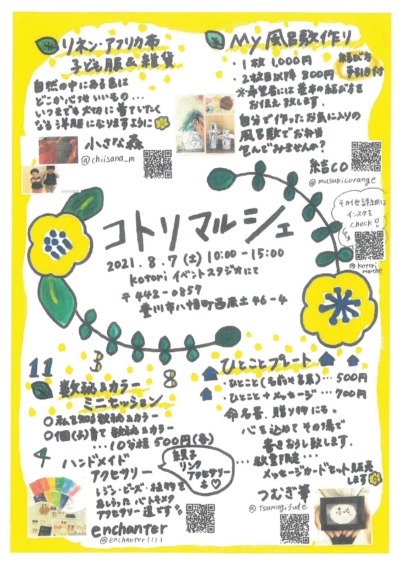 リネン・アフリカ布
子ども服&雑貨
自然の中にある色は
どこか心地いいもの…
いつまでも大切に着ていたく
なる洋服になりますように
小さな森
@chiisana_m
My 風呂敷作り
・1枚 1,000円
・2枚目以降 800円
結び方
手引き付
※希望者には基本の結び方を
お伝え致します。
自分で作ったお気に入りの
風呂敷でお弁当
包んでみませんか?
結co
@musubicorange
その他詳細は
インスタを
check!
@kotori
marche
コトリマルシェ
2021.8.7(土) 10:00-15:00
kotori イベントスタジオにて
〒442-0857
豊川市八幡町西赤土46-4
11
3
8
4
数秘&カラー
ミニセッション
○私を知る数秘&カラー
○個(子)育て 数秘&カラー
…10分程 500円(各)
ハンドメイド
アクセサリー
親子
リンク
アクセサリー
も♡
レジン・ビーズ・植物を
あしらったハンドメイド
アクセサリー達です。
enchanter
@enchanter1111
ひとことプレート
・ひとこと(名前も含)…500円
・ひとこと+メッセージ…700円
命名書、贈り物にも。
心を込めてその場で
書きお渡しします。
…数量限定…
メッセージカードセット販売
します
つむぎ筆
@tsumugifude